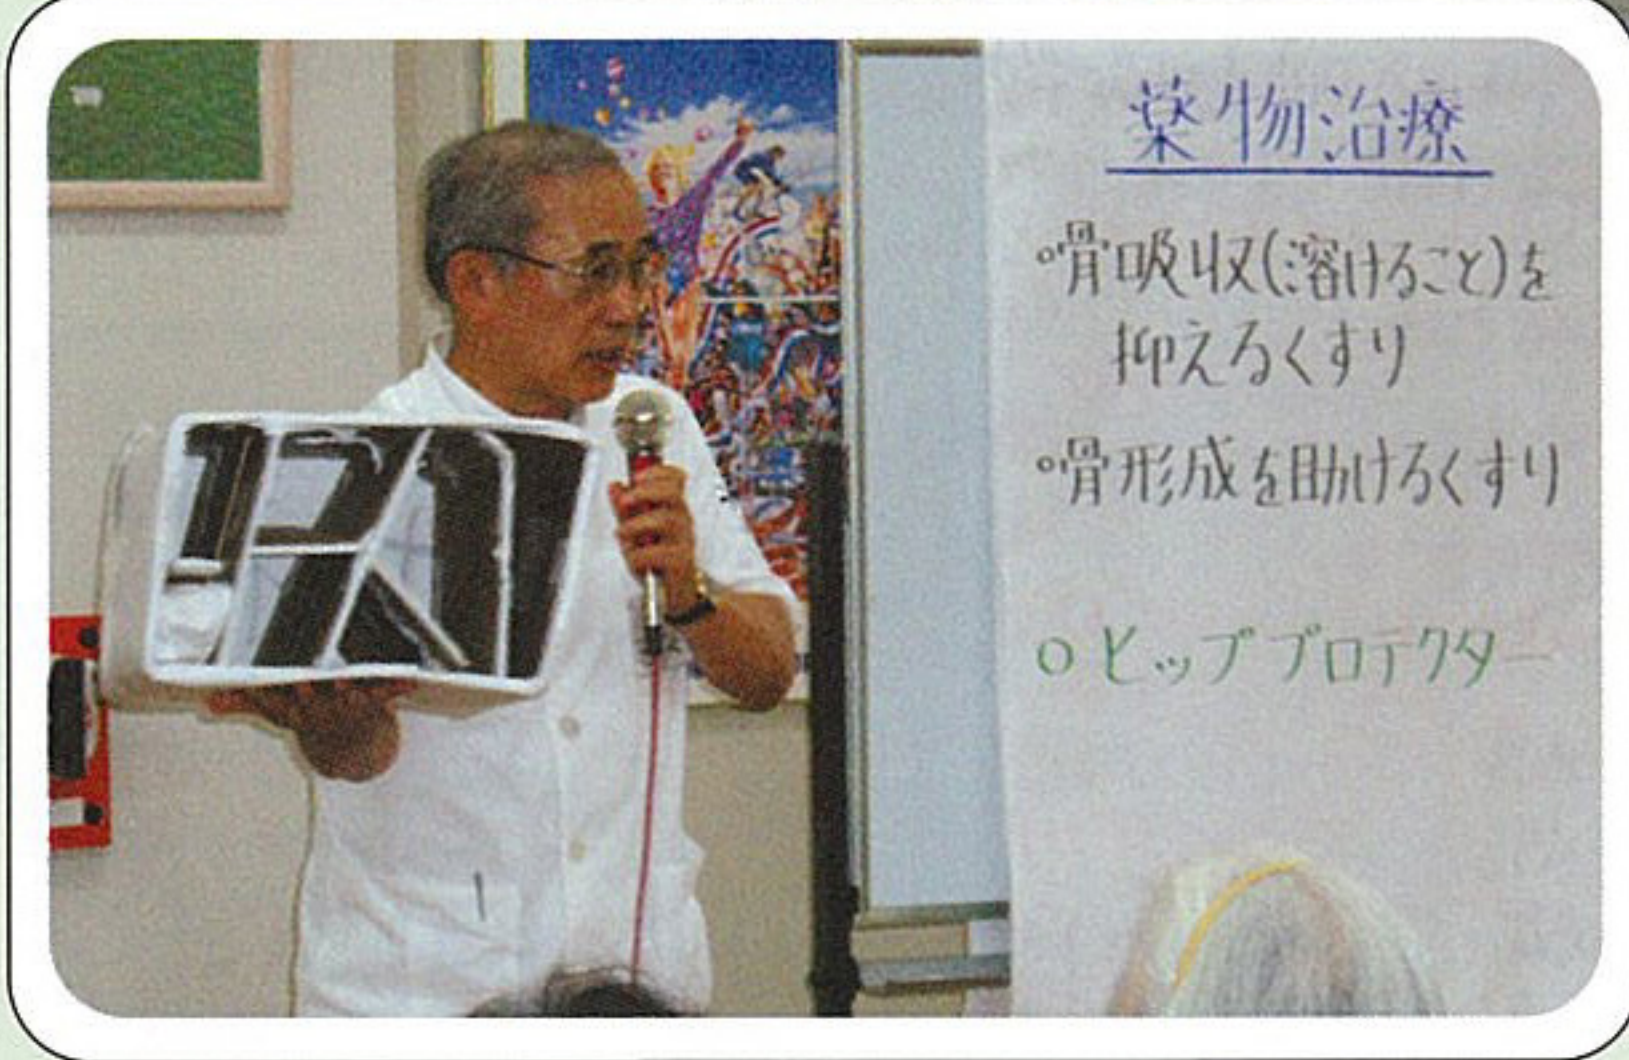 薬物治療
°骨吸収(溶けること)を
抑えるくすり
°骨形成を助けるくすり
○ヒッププロテクター